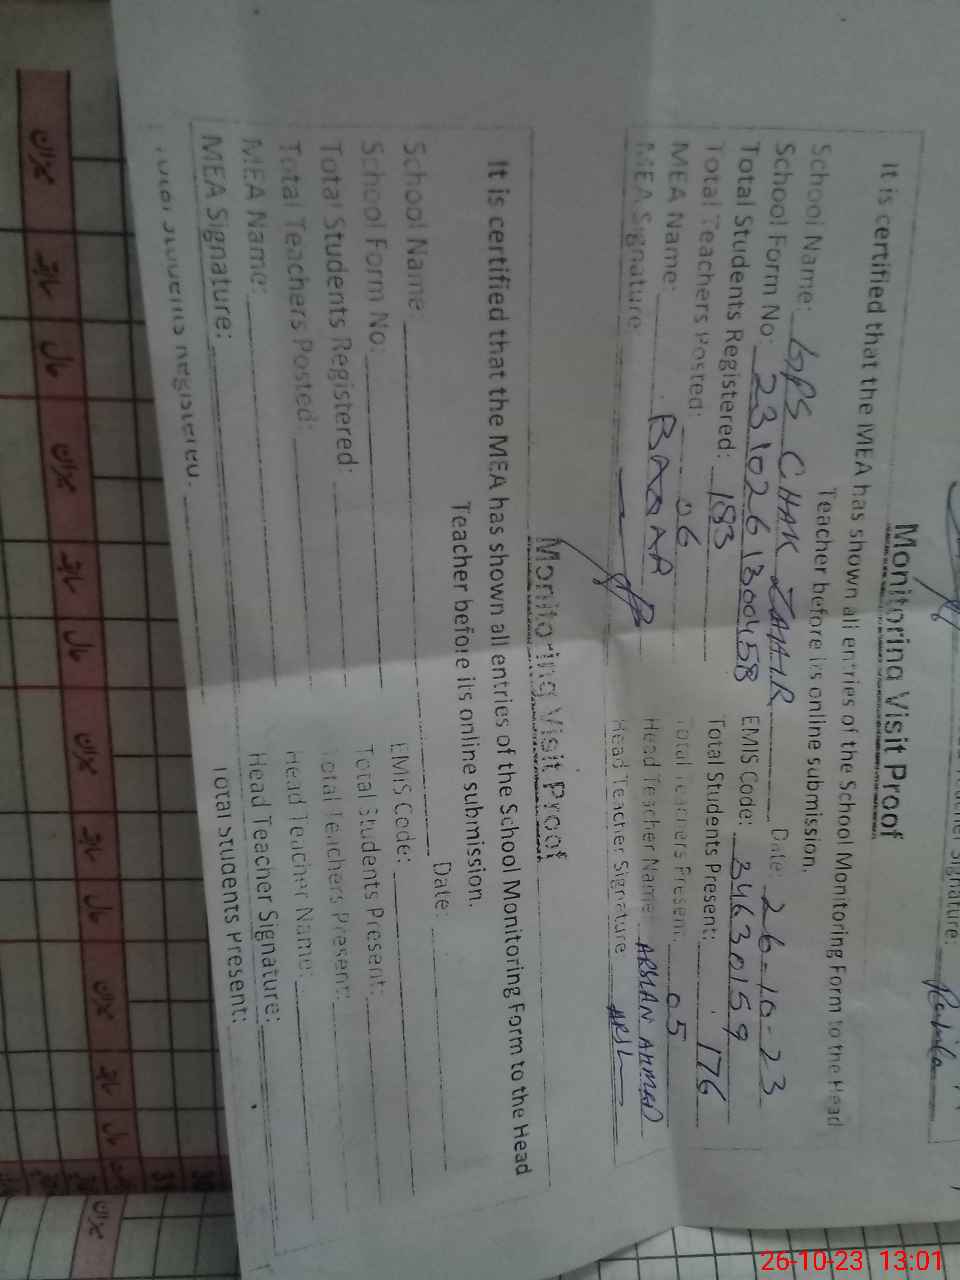 Signature:
Monitoring Visit Proof
It is certified that the MEA has shown all entries of the School Monitoring Form to the Head
Teacher before its online submission.
School Name: GPS CHAK ZAHIR Date: 26-10-23
School Form No: 2310261300458 EMIS Code: 34630159
Total Students Registered: 183 Total Students Present: 176
Total Teachers Posted: 06 Total Teachers Present: 05
MEA Name: BABAR Head Teacher Name: ARSLAN AHMED
MEA Signature: Head Teacher Signature ARSL
Monitoring Visit Proof
It is certified that the MEA has shown all entries of the School Monitoring Form to the Head
Teacher before its online submission.
School Name Date:
School Form No: EMIS Code:
Total Students Registered: Total Students Present:
Total Teachers Posted: Total Teachers Present:
MEA Name: Head Teacher Name:
MEA Signature: Head Teacher Signature:
Total Students Registered: Total Students Present:
میزان سابقہ حال میزان سابقہ حال میزان سابقہ حال میزان سابقہ حال میزان
26-10-23 13:01